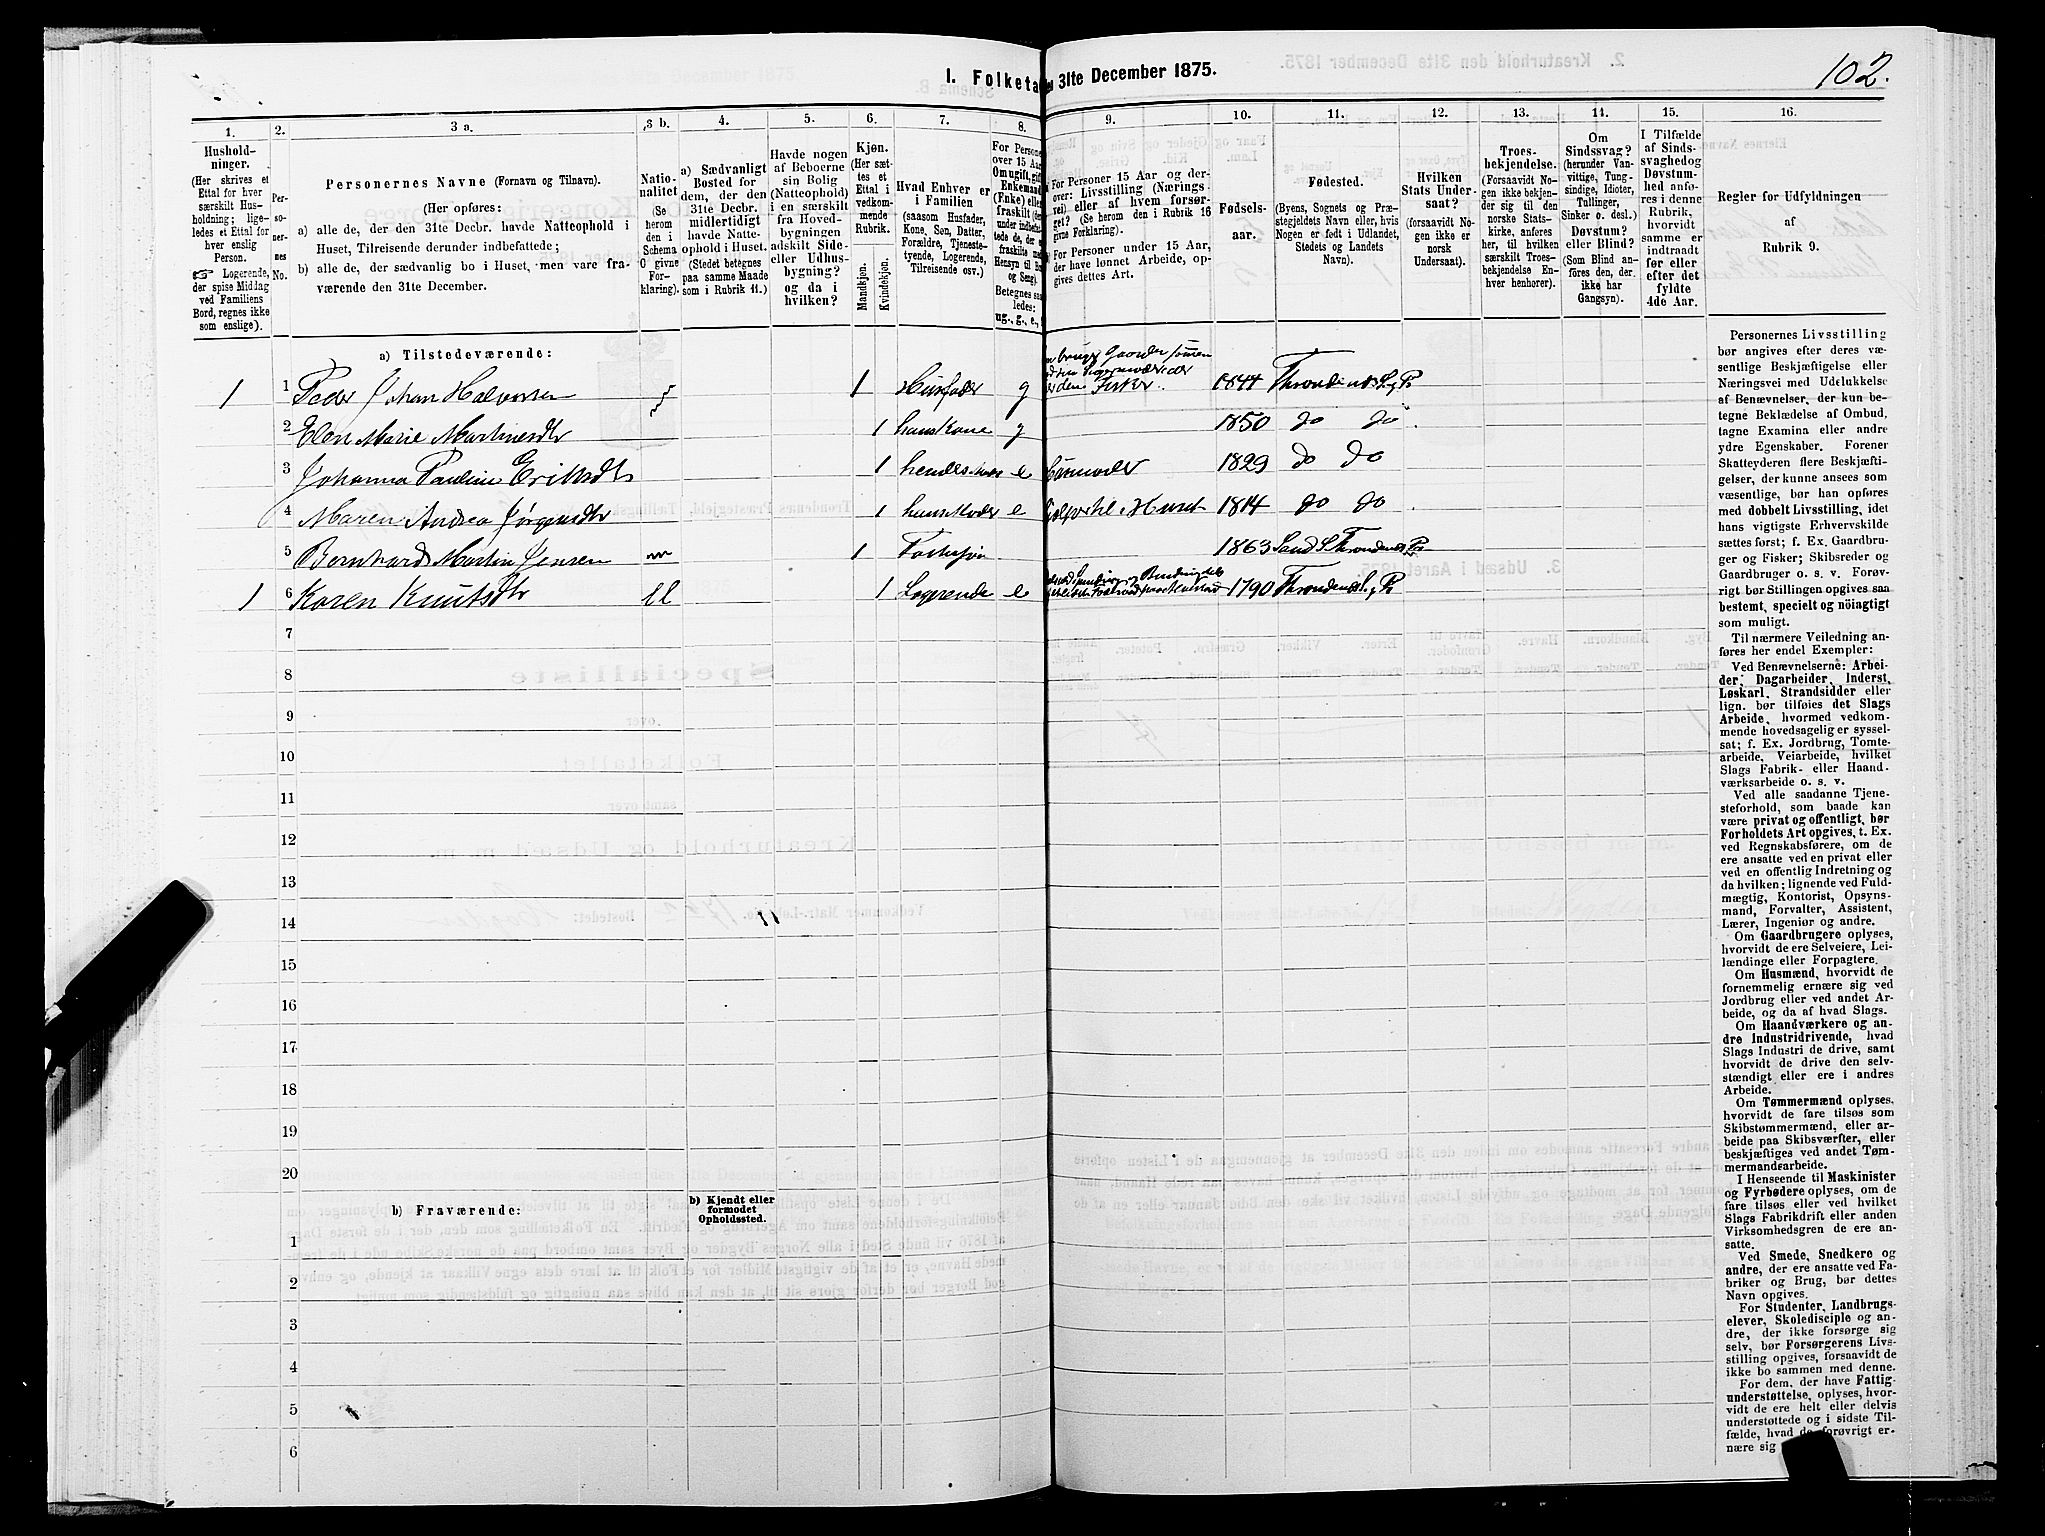 102.
I. Folketa
en 31te December 1875.
1.
2.
3 a.
3 b.
4.
5.
6.
7.
8.
9.
10.
11.
12.
13.
14.
15.
16.
Hushold-
ninger.
(Her skrives et
Ettal for hver
særskilt Hus-
holdning; lige-
ledes et Ettal for
hver enslig
Person.
☞ Logerende,
der spise Middag
ved Familiens
Bord, regnes ikke
som enslige).
Per-
so-
ner-
nes
No.
Personernes Navne (Fornavn og Tilnavn).
(Her opføres:
a) alle de, der den 31te Decbr. havde Natteophold i
Huset, Tilreisende derunder indbefattede;
b) alle de, der sædvanlig bo i Huset, men vare fra-
værende den 31te December.
Natio-
nalitet
(Se
herom
den i
Schema
O givne
For-
klaring).
a) Sædvanligt
Bosted for
dem, der den
31te Decbr.
midlertidigt
havde Natte-
ophold i Huset.
(Stedet betegnes
paa samme Maade
som i Rubrik 11.)
Havde nogen
af Beboerne
sin Bolig
(Natteophold)
i en særskilt
fra Hoved-
bygningen
adskilt Side-
eller Udhus-
bygning?
og da i
hvilken?
Kjøn.
(Her sæt-
tes et
Ettal i
vedkom-
mende
Rubrik.
Mandkjøn.
Kvindekjøn.
Hvad Enhver er
i Familien
(saasom Husfader,
Kone, Søn, Datter,
Forældre, Tjeneste-
tyende, Logerende,
Tilreisende osv.)
For Persone
over 15 Aar
Om ugift, gift
Enkemand
(Enke) eller
fraskilt (de
under indbefat-
tede de, der e
fraskilte me
Hensyn til Bo
og Seng).
Betegnes saa
ledes:
ug., g., e.,
a) For Personer 15 Aar og der-
over: Livsstilling (Nærings-
vei) eller af hvem forsør-
get? (Se herom den i Rubrik 16
givne Forklaring).
b) For Personer under 15 Aar,
der have lønnet Arbeide, op-
gives dettes Art.
Fødsels-
aar.
Fødested.
(Byens, Sognets og Præ-
stegjeldets Navn eller, hvis
Nogen er født i Udlandet,
Stedets og Landets
Navn).
Hvilken
Stats Under-
saat?
(forsaavidt No-
gen ikke er
norsk
Undersaat).
Troes-
bekjendelse.
(Forsaavidt No-
gen ikke bekjen-
der sig til den
norske Stats-
kirke, anføres
her, til hvilken
særskilt Troes-
bekjendelse En-
hver henhører).
Om
Sindssvag?
(herunder Van-
vittige, Tung-
sindige, Idioter,
Tullinger,
Sinker o. desl.)
Døvstum?
eller Blind?
(Som Blind an-
føres den, der
ikke har
Gangsyn).
I Tilfælde
af Sinds-
svaghed og
Døvstum-
hed anfø-
res i denne
Rubrik,
hvorvidt
samme er
indtraadt
før eller
efter det
fyldte
4de Aar.
Regler for Udfyldningen
af
Rubrik 9.
a) Tilstedeværende:
1 1 Peder Johan Halvorsen 1 Husfader g Fisker. 1844
2 Elen Marie Martinesdtr 1 hans Kone g 1850 do do
3 Johanna Pauline Eriksdtr 1 hendes Moder e 1829 do do
4 Maren Andrea Jørgensdtr 1 hans Moder e 1814 do do
5 Bernhard Martin Jensen 1 Fostersøn 1863 Sand S Trondenes Pr
1 6 Karen Knutsdtr 1 Logerende e 1790
7
8
9
10
11
12
13
14
15
16
17
18
19
20
b) Fraværende:
b) Kjendt eller
formodet
Opholdssted.
1
2
3
4
5
6
Personernes Livsstilling
bør angives efter deres væ-
sentlige Beskjæftigelse eller
Næringsvei med Udelukkelse
af Benævnelser, der kun be-
tegne Beklædelse af Ombud,
tagne Examina eller andre
ydre Egenskaber. Forener
Skatteyderen flere Beskjæfti-
gelser, der kunne ansees som
væsentlige, bør han opføres
med dobbelt Livsstilling, idet
hans vigtigste Erhvervskilde
sættes først; f. Ex. Gaardbru-
ger og Fisker; Skibsreder og
Gaardbruger o. s. v. Forøv-
rigt bør Stillingen opgives saa
bestemt, specielt og nöiagtigt
som muligt.
Til nærmere Veiledning an-
føres her endel Exempler:
Ved Benævnelserne: Arbei-
der, Dagarbeider, Inderst,
Løskarl, Strandsidder eller
lign. bør tilføies det Slags
Arbeide, hvormed vedkom-
mende hovedsagelig er syssel-
sat; f. Ex. Jordbrug, Tomte-
arbeide, Veiarbeide, hvilket
Slags Fabrik- eller Haand-
værksarbeide o. s. v.
Ved alle saadanne Tjene-
steforhold, som baade kan
være privat og offentligt, bør
Forholdets Art opgives, t. Ex.
ved Regnskabsførere, om de
ere ansatte ved en privat eller
ved en offentlig Indretning og
da hvilken; lignende ved Fuld-
mægtig, Kontorist, Opsyns-
mand, Forvalter, Assistent,
Lærer, Ingeniør og andre.
Om Gaardbrugere oplyses,
hvorvidt de ere Selveiere, Lei-
lændinge eller Forpagtere.
Om Husmænd, hvorvidt de
fornemmelig ernære sig ved
Jordbrug eller ved andet Ar-
beide, og da af hvad Slags.
Om Haandværkere og an-
dre Industridrivende, hvad
Slags Industri de drive, samt
hvorvidt de drive den selv-
stændigt eller ere i andres
Arbeide.
Om Tømmermænd oplyses,
hvorvidt de fare tilsøs som
Skibstømmermænd, eller ar-
beide paa Skibsværfter, eller
beskjæftiges ved andet Tøm-
mermandsarbeide.
I Henseende til Maskinister
og Fyrbødere oplyses, om de
fare tilsøs eller ved hvilket
Slags Fabrikdrift eller anden
Virksomhedsgren de ere an-
satte.
Ved Smede, Snedkere og
andre, der ere ansatte ved Fa-
briker og Brug, bør dettes
Navn opgives.
For Studenter, Landbrugs-
elever, Skoledisciple og an-
dre, der ikke forsørge sig
selv, bør Forsørgerens Livs-
stilling opgives, forsaavidt de
ikke bo sammen med denne.
For dem, der have Fattig-
understøttelse, oplyses, hvor-
vidt de ere helt eller delvis
understøttede og i sidste Til-
fælde, hvad de forøvrigt er-
nære sig